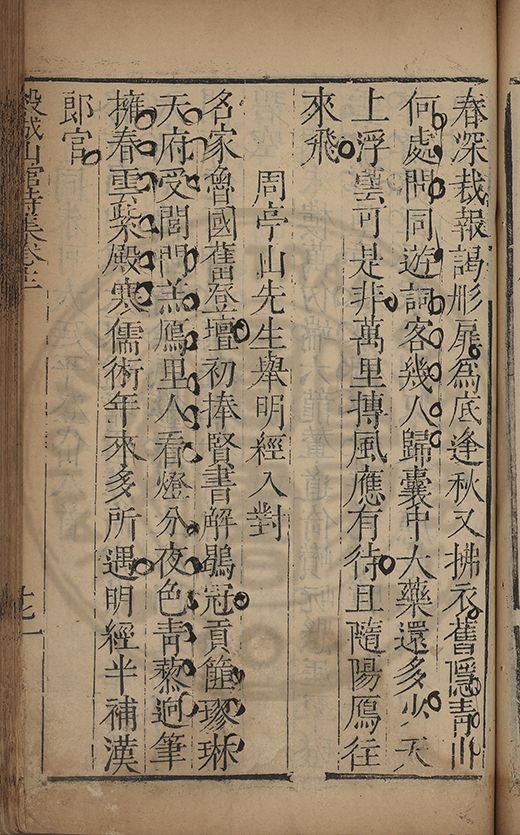 春深裁報謁彤扉為底逢秋又拂衣舊隱青山
何處問同遊詞客幾人歸囊中大藥還多少天
上浮雲可是非萬里摶風應有待且隨陽鴈往
來飛
周亭山先生舉明經入對
名家魯國舊登壇初捧賢書解鶡冠貢篚璆琳
天府受閭門羔鴈里人看燈分夜色青藜迥筆
擁春雲紫殿寒儒術年來多所遇明經半補漢
郎官
城山館詩集卷